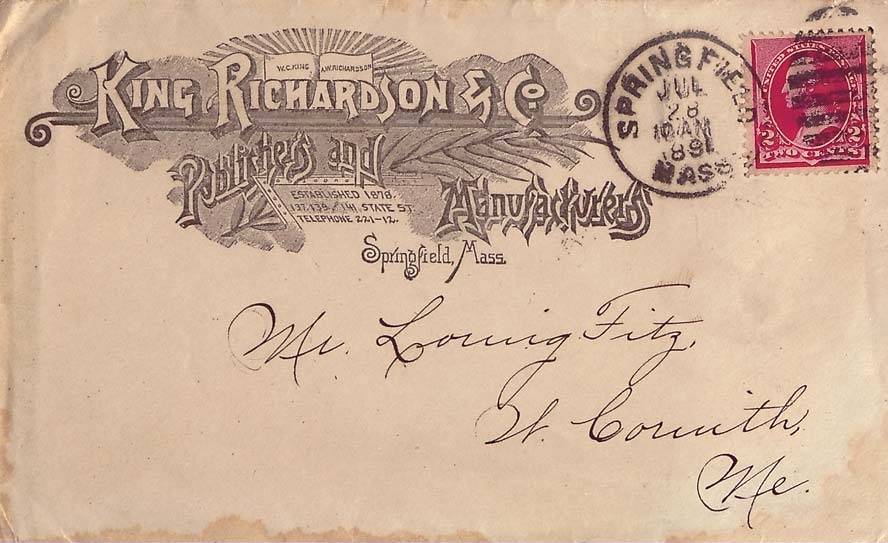 W.C.KING A.W.RICHARDSON
KING RICHARDSON & Co
Publishers and
Manufacturers
ESTABLISHED 1878.
137, 139 141 STATE ST.
TELEPHONE 221-12.
Springfield, Mass.
SPRINGFIELD
JUL
28
10 AM
MASS
UNITED STATES POSTAGE
2 2
TWO CENTS
Mr. Loring Fitz,
Corinth,
Me.